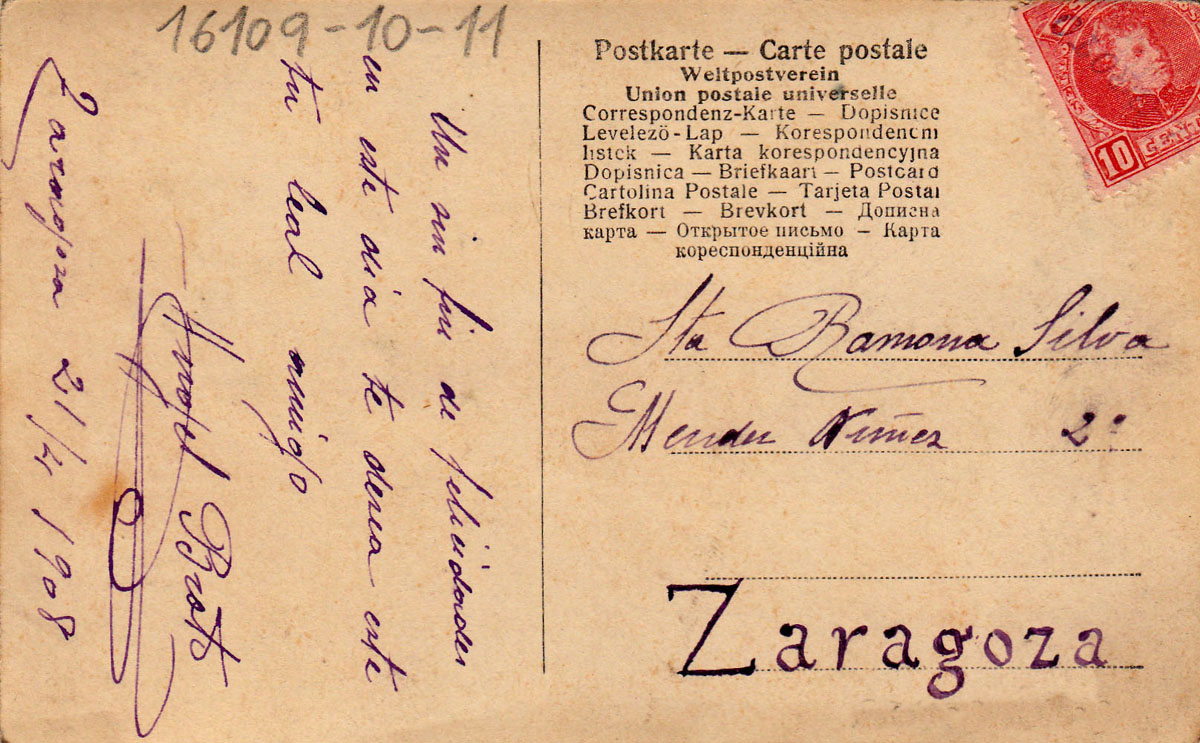 16109-10-11
Un sin fin de felicidades
en este dia te desea este
tu leal amigo
Angel Broto
Zaragoza 21/4 1908
Postkarte — Carte postale
Weltpostverein
Union postale universelle
Correspondenz-Karte — Dopisnice
Levelező-Lap — Korespondencni
listek — Karta korespondencyjna
Dopisnica — Briefkaart — Postcard
Cartolina Postale — Tarjeta Postal
Brefkort — Brevkort — Дописна
карта — Открытое письмо — Карта
кореспонденційна
10
Sta Ramona Silva
Mendez Nuñez 2º
Zaragoza